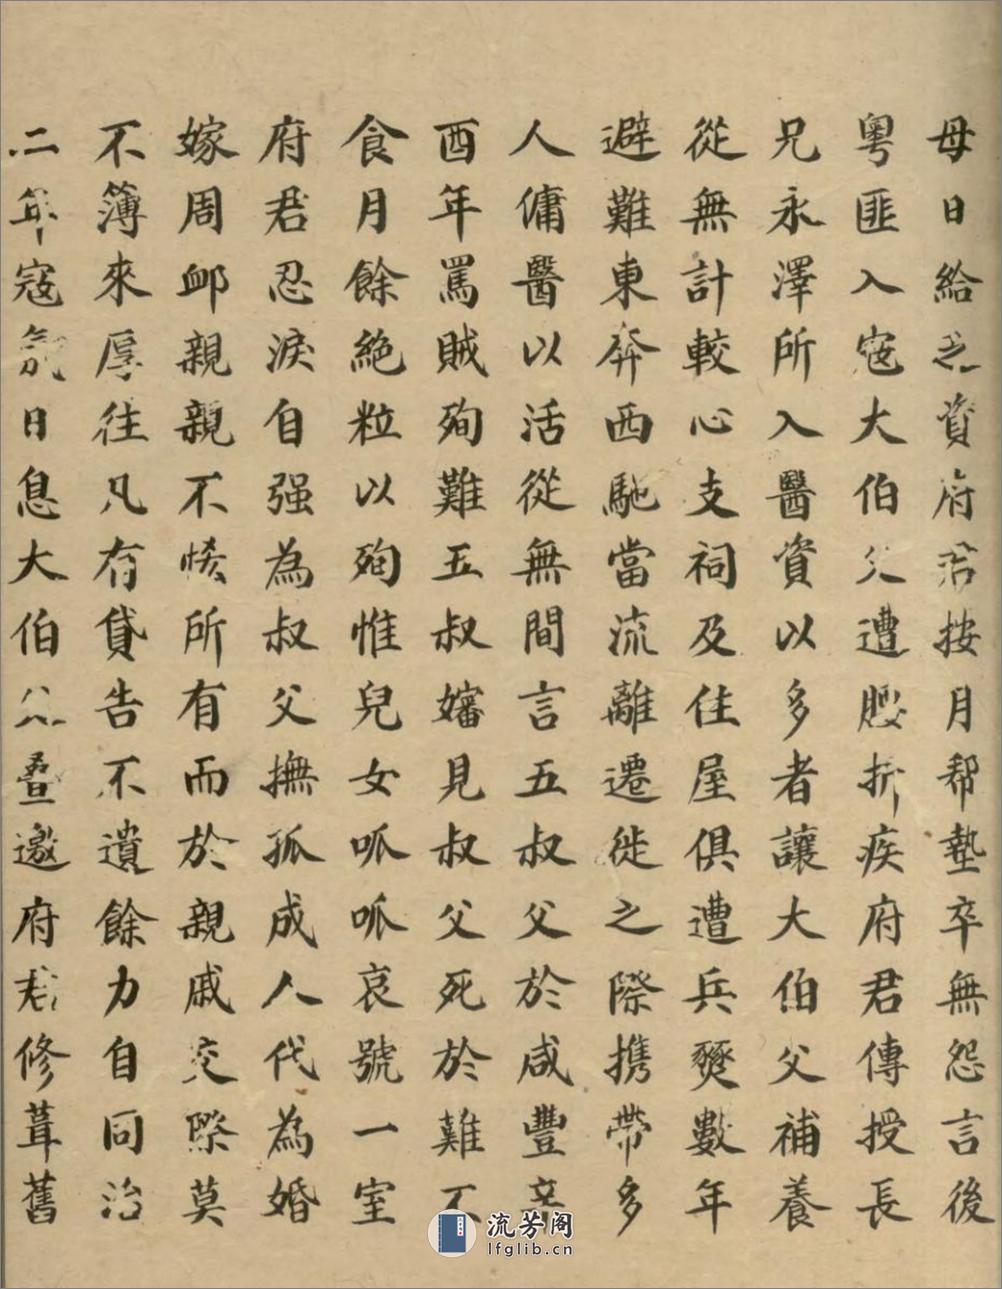 母日給之資府君按月帮墊卒無怨言後
粵匪入寇大伯父遭髎折疾府君傳授長
兄永澤所入醫資以多者讓大伯父補養
從無計較心支祠及住屋俱遭兵燹數年
避難東奔西馳當流離遷徙之際携帶多
人傭醫以活從無間言五叔父於咸豐辛
酉年罵賊殉難五叔嬸見叔父死於難不
食月餘絕粒以殉惟兒女呱呱哀號一室
府君忍淚自强為叔父撫孤成人代為婚
嫁周卹親親不悋所有而於親戚交際莫
不簿來厚往凡有貸告不遺餘力自同治
二年寇氛日息大伯父疊邀府君修葺舊
流芳阁
lfglib.cn